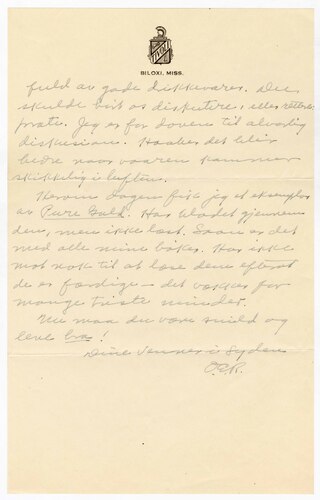 BILOXI, MISS.
fuld av gode drikkevarer. Du
skulde hit os diskutere, eller rettere
prate. Jeg er for doven til alvorlig
diskusion. Haaber det blir
bedre naar vaaren kommer
skikkelig i luften.
Herom dagen fik jeg et eksemplar
av Pure Gold. Har bladet gjennem
den, men ikke læst. Saan er det
med alle mine bøker. Har ikke
mot nok til at læse dem efterat
de er færdige — det vækkes for
mange triste minder.
Nu maa du være snild og
leve bra!
Dine venner i Syden
O.E.R.